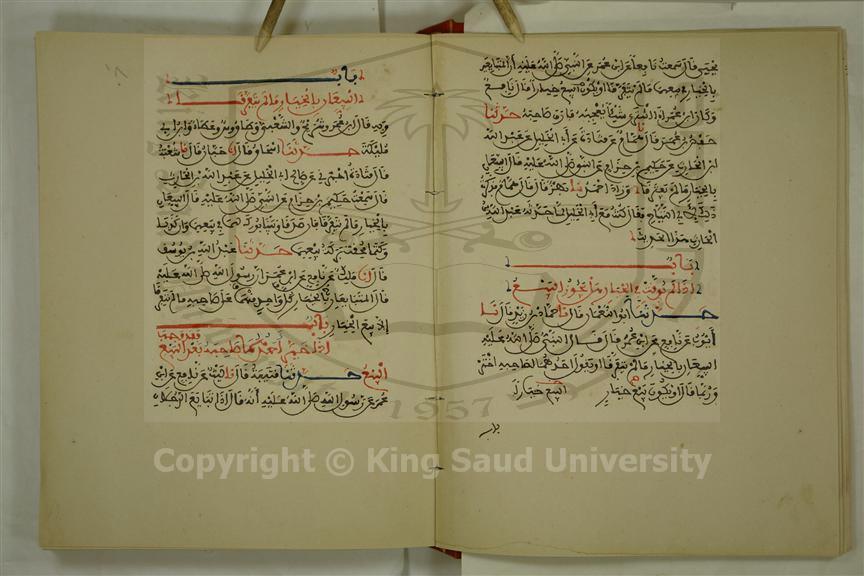 يحيى قال سمعت نافعا عن ابن عمر عن النبي صلى الله عليه إن المتبايعين
بالخيار في بيعهما ما لم يتفرقا أو يكون البيع خيارا قال نافع
وكان ابن عمر إذا اشترى شيئا يعجبه فارق صاحبه حدثنا
حفص بن عمر قال همام عن قتادة عن أبي الخليل عن عبد الله
ابن الحارث عن حكيم بن حزام عن النبي صلى الله عليه قال البيعان
بالخيار ما لم يفترقا وزاد أحمد نا بهز قال همام فذكرت
ذلك لأبي التياح فقال كنت مع أبي الخليل لما حدثه عبد الله بن
الحارث هذا الحديث
باب
إذا لم يوقت في الخيار هل يجوز البيع
حدثنا أبو النعمان قال نا حماد بن زيد قال نا
أيوب عن نافع عن ابن عمر قال قال النبي صلى الله عليه
البيعان بالخيار ما لم يتفرقا أو يقول أحدهما لصاحبه اختر
وربما قال أو يكون بيع خيار
باب
باب
البيعان بالخيار ما لم يتفرقا
وبه قال ابن عمر وشريح والشعبي وطاوس وعطاء وابن أبي
مليكة حدثنا إسحاق قال نا حبان قال نا شعبة
قال قتادة أخبرني عن صالح أبي الخليل عن عبد الله بن الحارث
قال سمعت حكيم بن حزام عن النبي صلى الله عليه قال البيعان
بالخيار ما لم يتفرقا فإن صدقا وبينا بورك لهما في بيعهما وإن كذبا
وكتما محقت بركة بيعهما حدثنا عبد الله بن يوسف
قال نا ملك عن نافع عن ابن عمر أن رسول الله صلى الله عليه
قال المتبايعان بالخيار كل واحد منهما على صاحبه ما لم يتفرقا
إلا بيع الخيار باب
إذا خير أحدهما صاحبه بعد البيع فقد وجب
البيع حدثنا قتيبة قال نا ليث عن نافع عن ابن
عمر عن رسول الله صلى الله عليه أنه قال إذا تبايع الرجلان
Copyright © King Saud University
1957